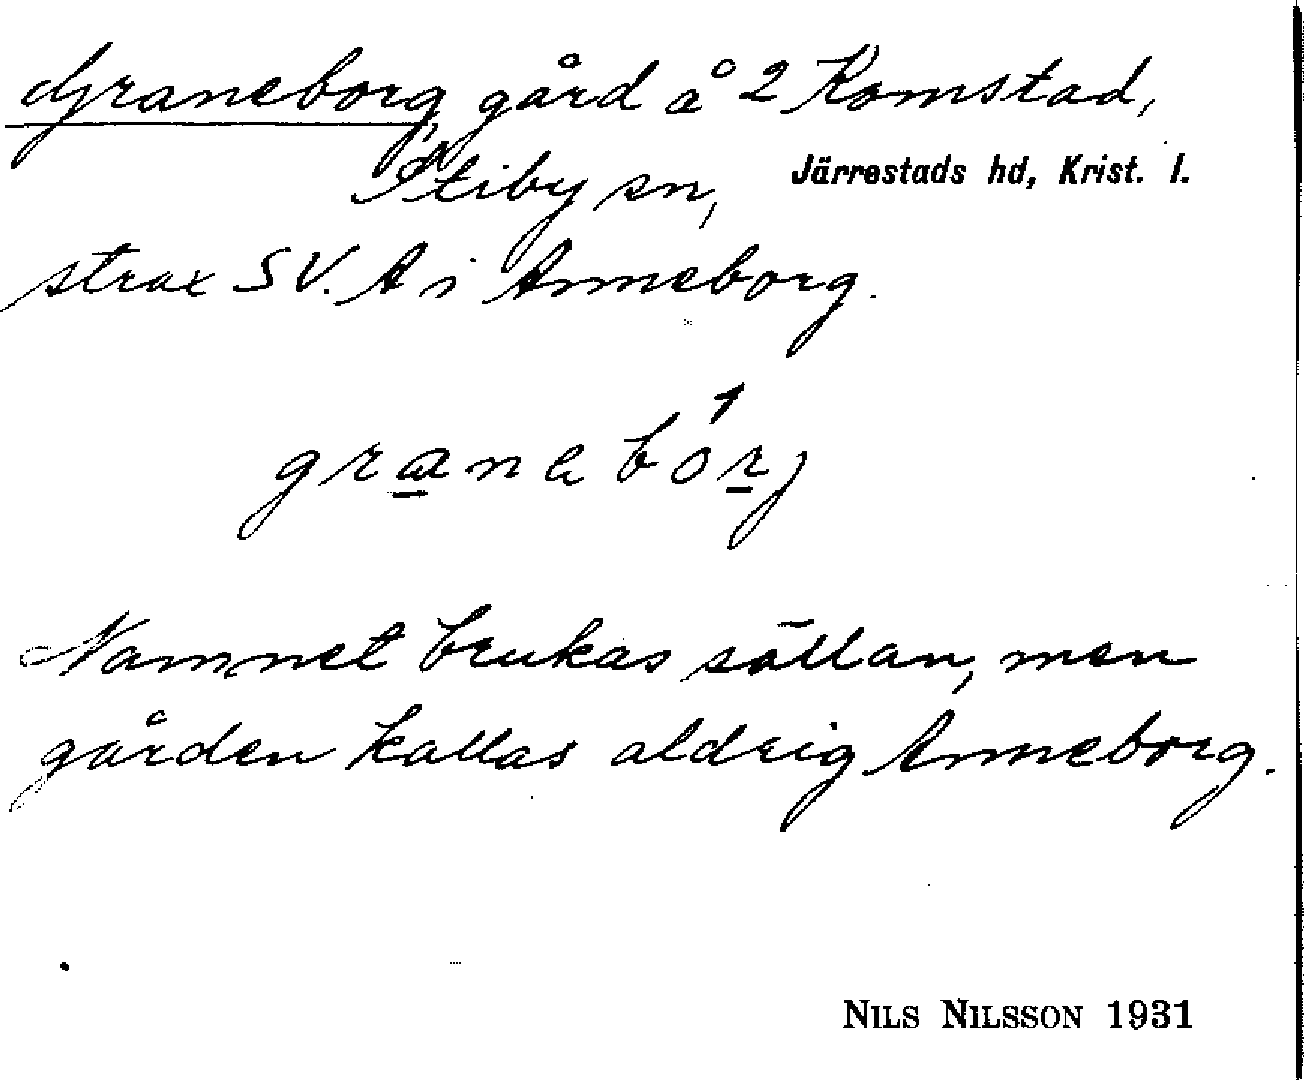 Graneborg, gård å 2 Komstad,
Stiby sn, Järrestads hd, Krist. l.
strax SV. A i Anneborg.
granebórj
Namnet brukas sällan, men
gården kallas aldrig Anneborg.
NILS NILSSON 1931